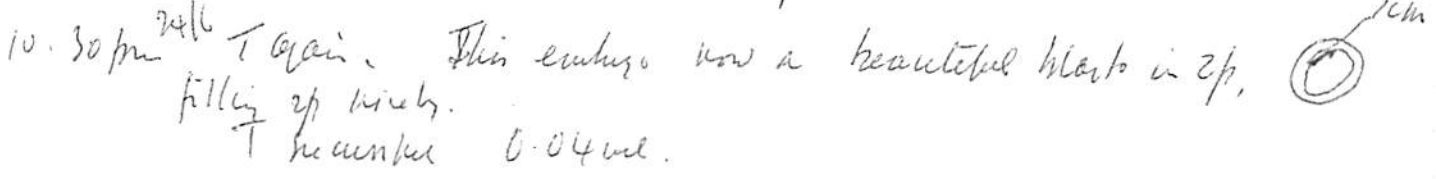 10.30pm 24/6 T again. This embryo now a beautiful blasto in zp, icm
filling zp nicely.
T successful 0.04ml.